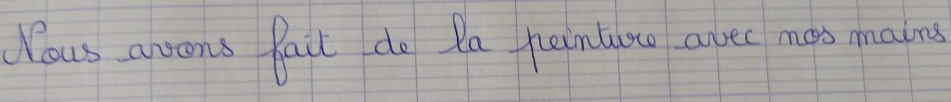 Nous avons fait de la peinture avec nos mains